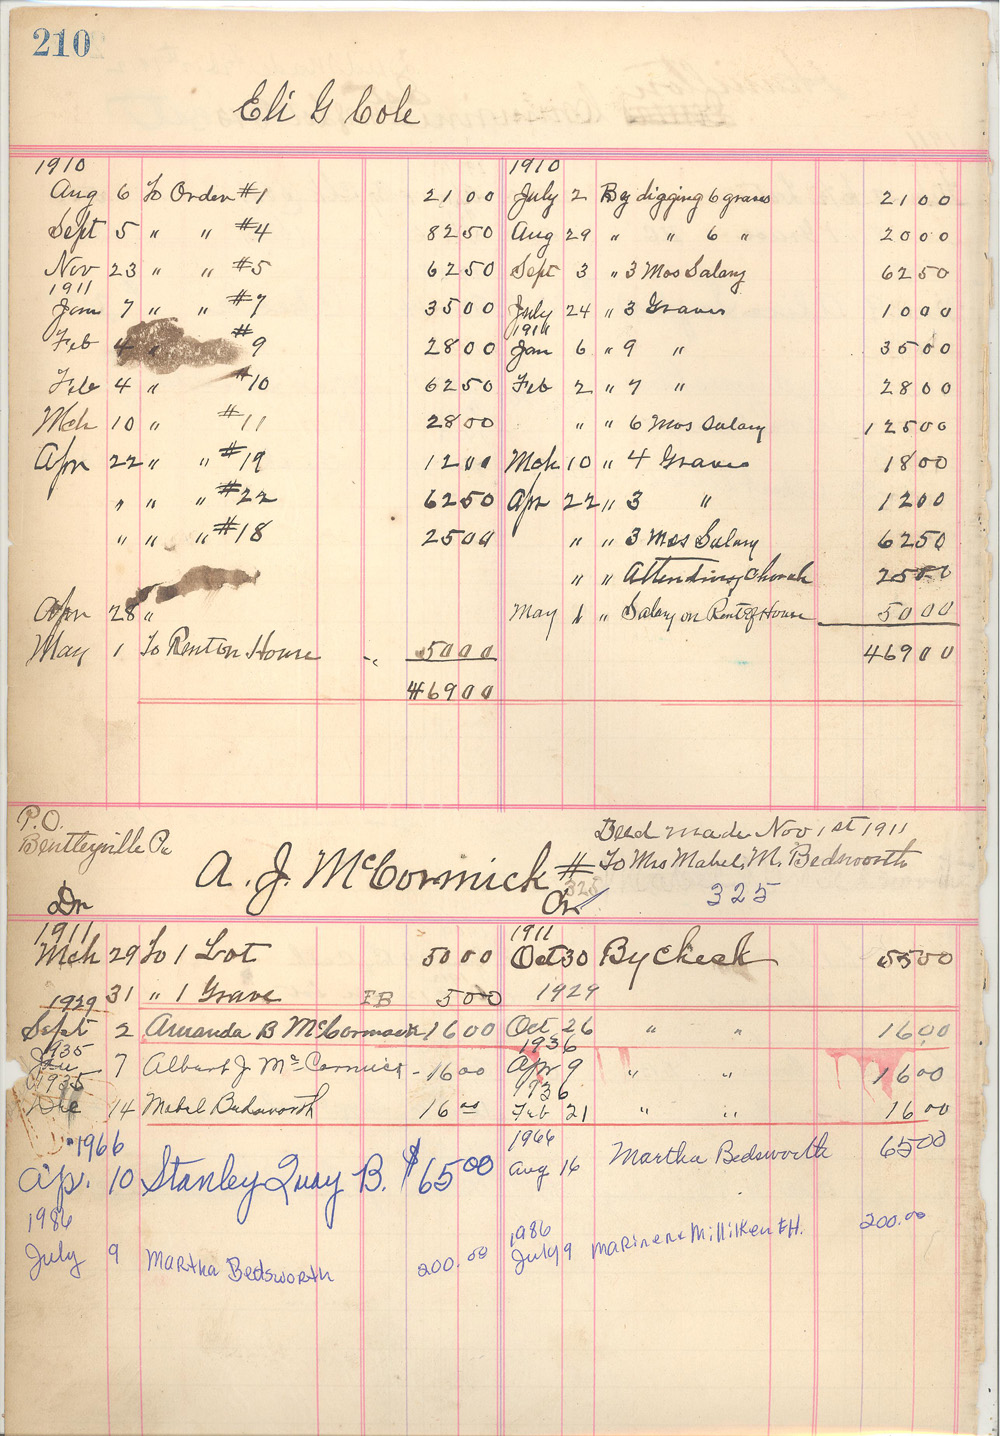 210
Eli G Cole
1910 1910
Aug 6 To Order #1 21 00 July 2 By digging 6 graves 21 00
Sept 5 " " #4 82 50 Aug 29 " " 6 " 20 00
Nov 23 " " #5 62 50 Sept 3 " 3 Mos Salary 62 50
1911
Jan 7 " " #7 35 00 July 24 " 3 Graves 10 00
1911
Feb 4 " #9 28 00 Jan 6 " 9 " 35 00
Feb 4 " #10 62 50 Feb 2 " 7 " 28 00
Mch 10 " #11 28 00 " " 6 Mos Salary 125 00
Apr 22 " " #19 12 00 Mch 10 " 4 Graves 18 00
" " " #22 62 50 Apr 22 " 3 " 12 00
" " " #18 25 00 " " 3 Mos Salary 62 50
" " Attending Church 25 00
Apr 28 " May 1 " Salary on Rent of House 50 00
May 1 To Rent on House " 50 00 469 00
469 00
P.O.
Bentleyville Pa
Deed made Nov 1st 1911
A. J. McCormick # 325 To Mrs Mabel M. Bedsworth
325
Dr Cr
1911 1911
Mch 29 To 1 Lot 50 00 Oct 30 By Check 55 00
31 " 1 Grave FB 5 00 1929
1929
Sept 2 Amanda B McCormack 16 00 Oct 26 " " 16.00
1935 1936
Jan 7 Albert J McCormick - 16 00 Apr 9 " " 16 00
1935 1936
Dec 14 Mabel Bedsworth 16 00 Feb 21 " " 16 00
1966 1966
Ap. 10 Stanley Quay B. $65 00 Aug 16 Martha Bedsworth 65 00
1986 1986
July 9 Martha Bedsworth 200.00 July 9 Mariner & Milliken F.H. 200.00